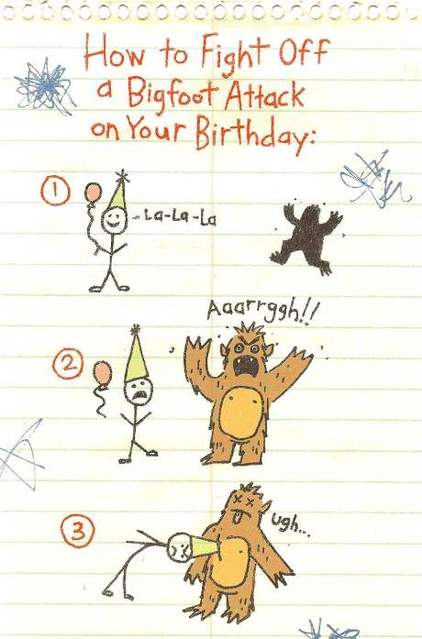 How to Fight Off
a Bigfoot Attack
on Your Birthday:
1
La-La-La
Aaarrggh!!
2
3
ugh...